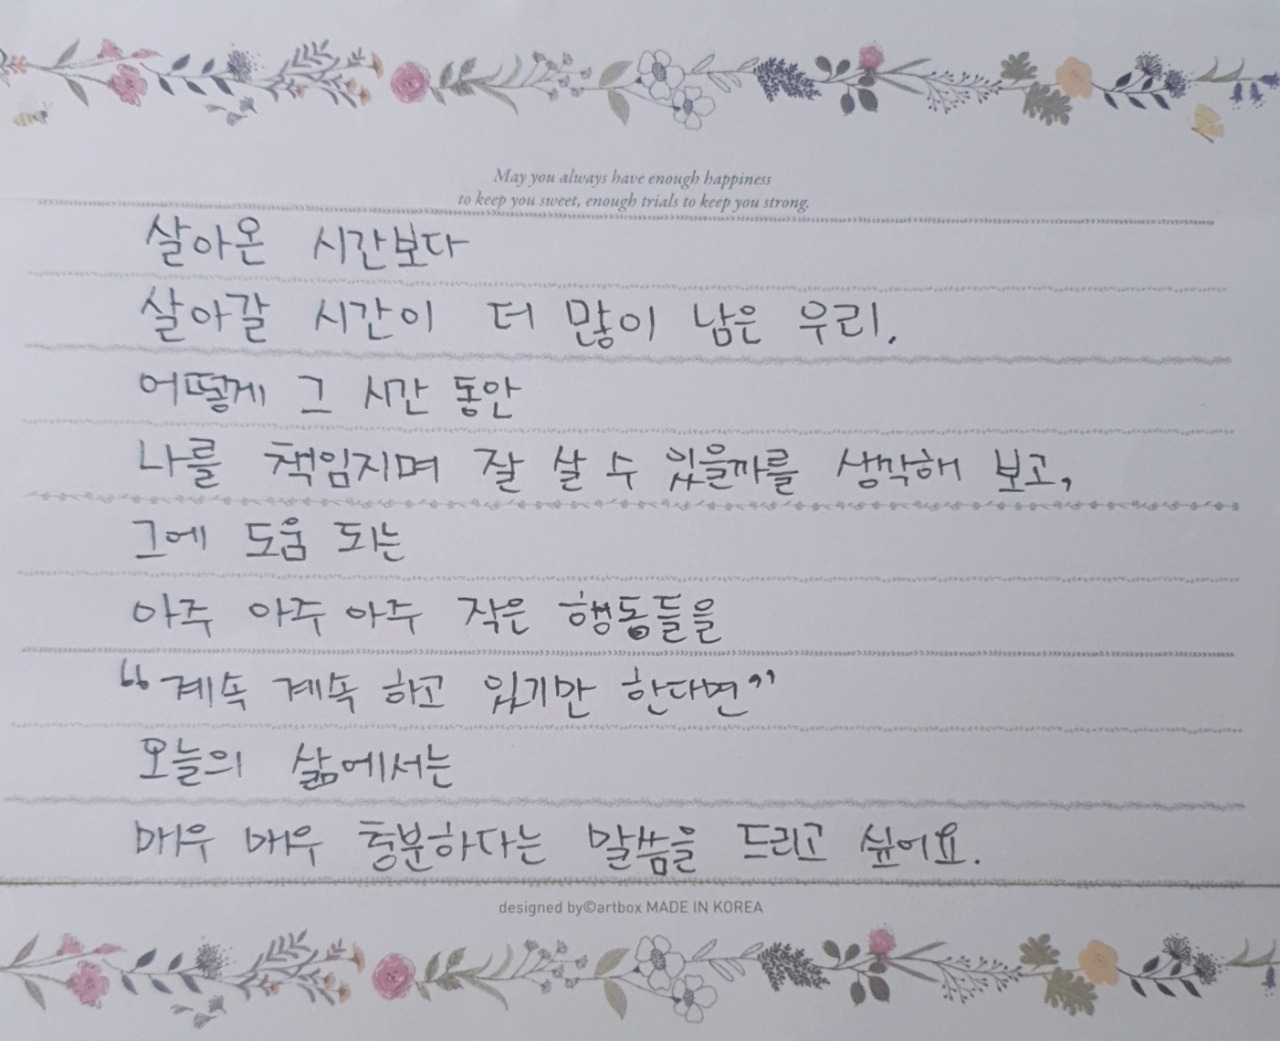 May you always have enough happiness
to keep you sweet, enough trials to keep you strong.
살아온 시간보다
살아갈 시간이 더 많이 남은 우리.
어떻게 그 시간 동안
나를 책임지며 잘 살 수 있을까를 생각해 보고,
그에 도움 되는
아주 아주 아주 작은 행동들을
“계속 계속 하고 있기만 한다면”
오늘의 삶에서는
매우 매우 충분하다는 말씀을 드리고 싶어요.
designed by©artbox MADE IN KOREA